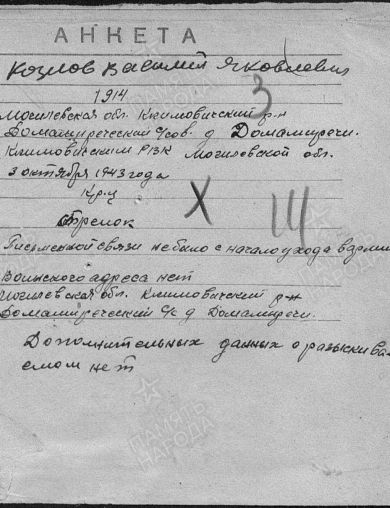 АНКЕТА
Козлов Василий Яковлевич
1914
Могилевская обл. Климовичский р-н
3
Домамеречский с/сов. д Домамиречи.
Климовичским РВК Могилевской обл.
3 октября 1943 года
Кр-ц
Стрелок
Х Щ
Письменной связи не было с начало ухода в арми
Воинского адреса нет
Могилевская обл. Климовичский р-н
Домамиреческий с/с д Домамиречи.
Дополнительных данных о разыскива
емом нет
ПАМЯТЬ
НАРОДА